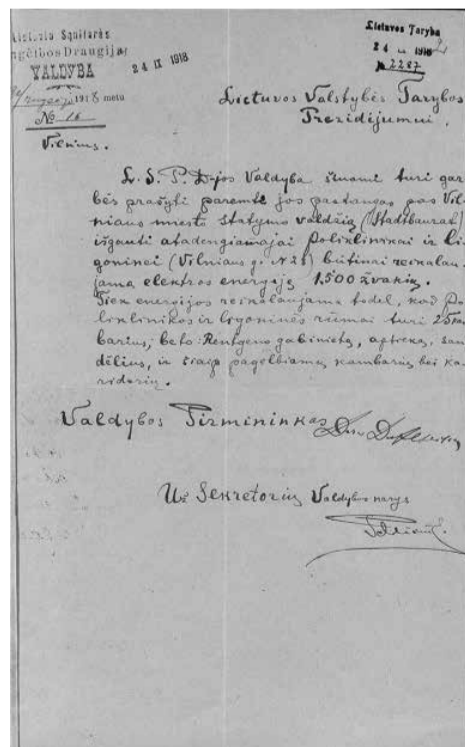 Lietuvos Sanitarės
Pagelbos Draugijai
VALDYBA
24 IX 1918
1918 metu
№ 16
Vilnius.
Lietuvos Taryba
24 IX 1918
№ 2287
Lietuvos Valstybės Tarybos
Prezidijumui.
L. S. P. D-jos Valdyba šiuomi turi gar
bės prašyti paremti jos pastangas pas Vil-
niaus miesto statymo valdžią (Stadtbaurat)
išgauti atadengiamajai Poliklinikai ir Li-
goninei (Vilniaus g. N 28) būtinai reikalau-
jamą elektros energiją 1.500 žvakių.
Tiek energijos reikalaujama todel, kad Po-
liklinikos ir lygoninės rūmai turi 25 kam
barius, beto: Rentgeno gabinetą, aptieką, san
dėlius, ir šiaip pagelbiamų kambarių bei ko-
ridorių.
Valdybos Pirmininkas
Už Sekretorių Valdybos narys